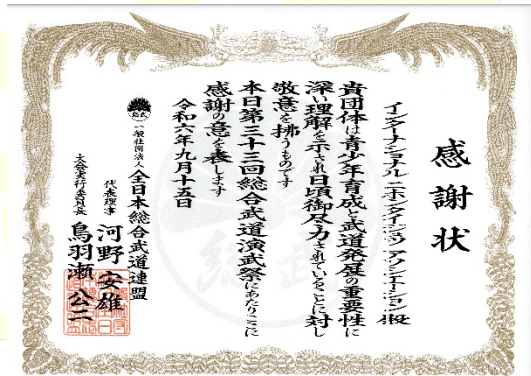 感謝状
インターナショナル ニホンタイジュツ アソシエーション 殿
貴団体は青少年育成と武道発展の重要性に
深い理解を示され日頃御尽力されていることに対し
敬意を拂うものです
本日第三十三回総合武道演武祭にあたりここに
感謝の意を表します
令和六年九月十五日
総武
一般社団法人全日本総合武道連盟
代表理事 河野安雄
大会実行委員長 鳥羽瀬公二